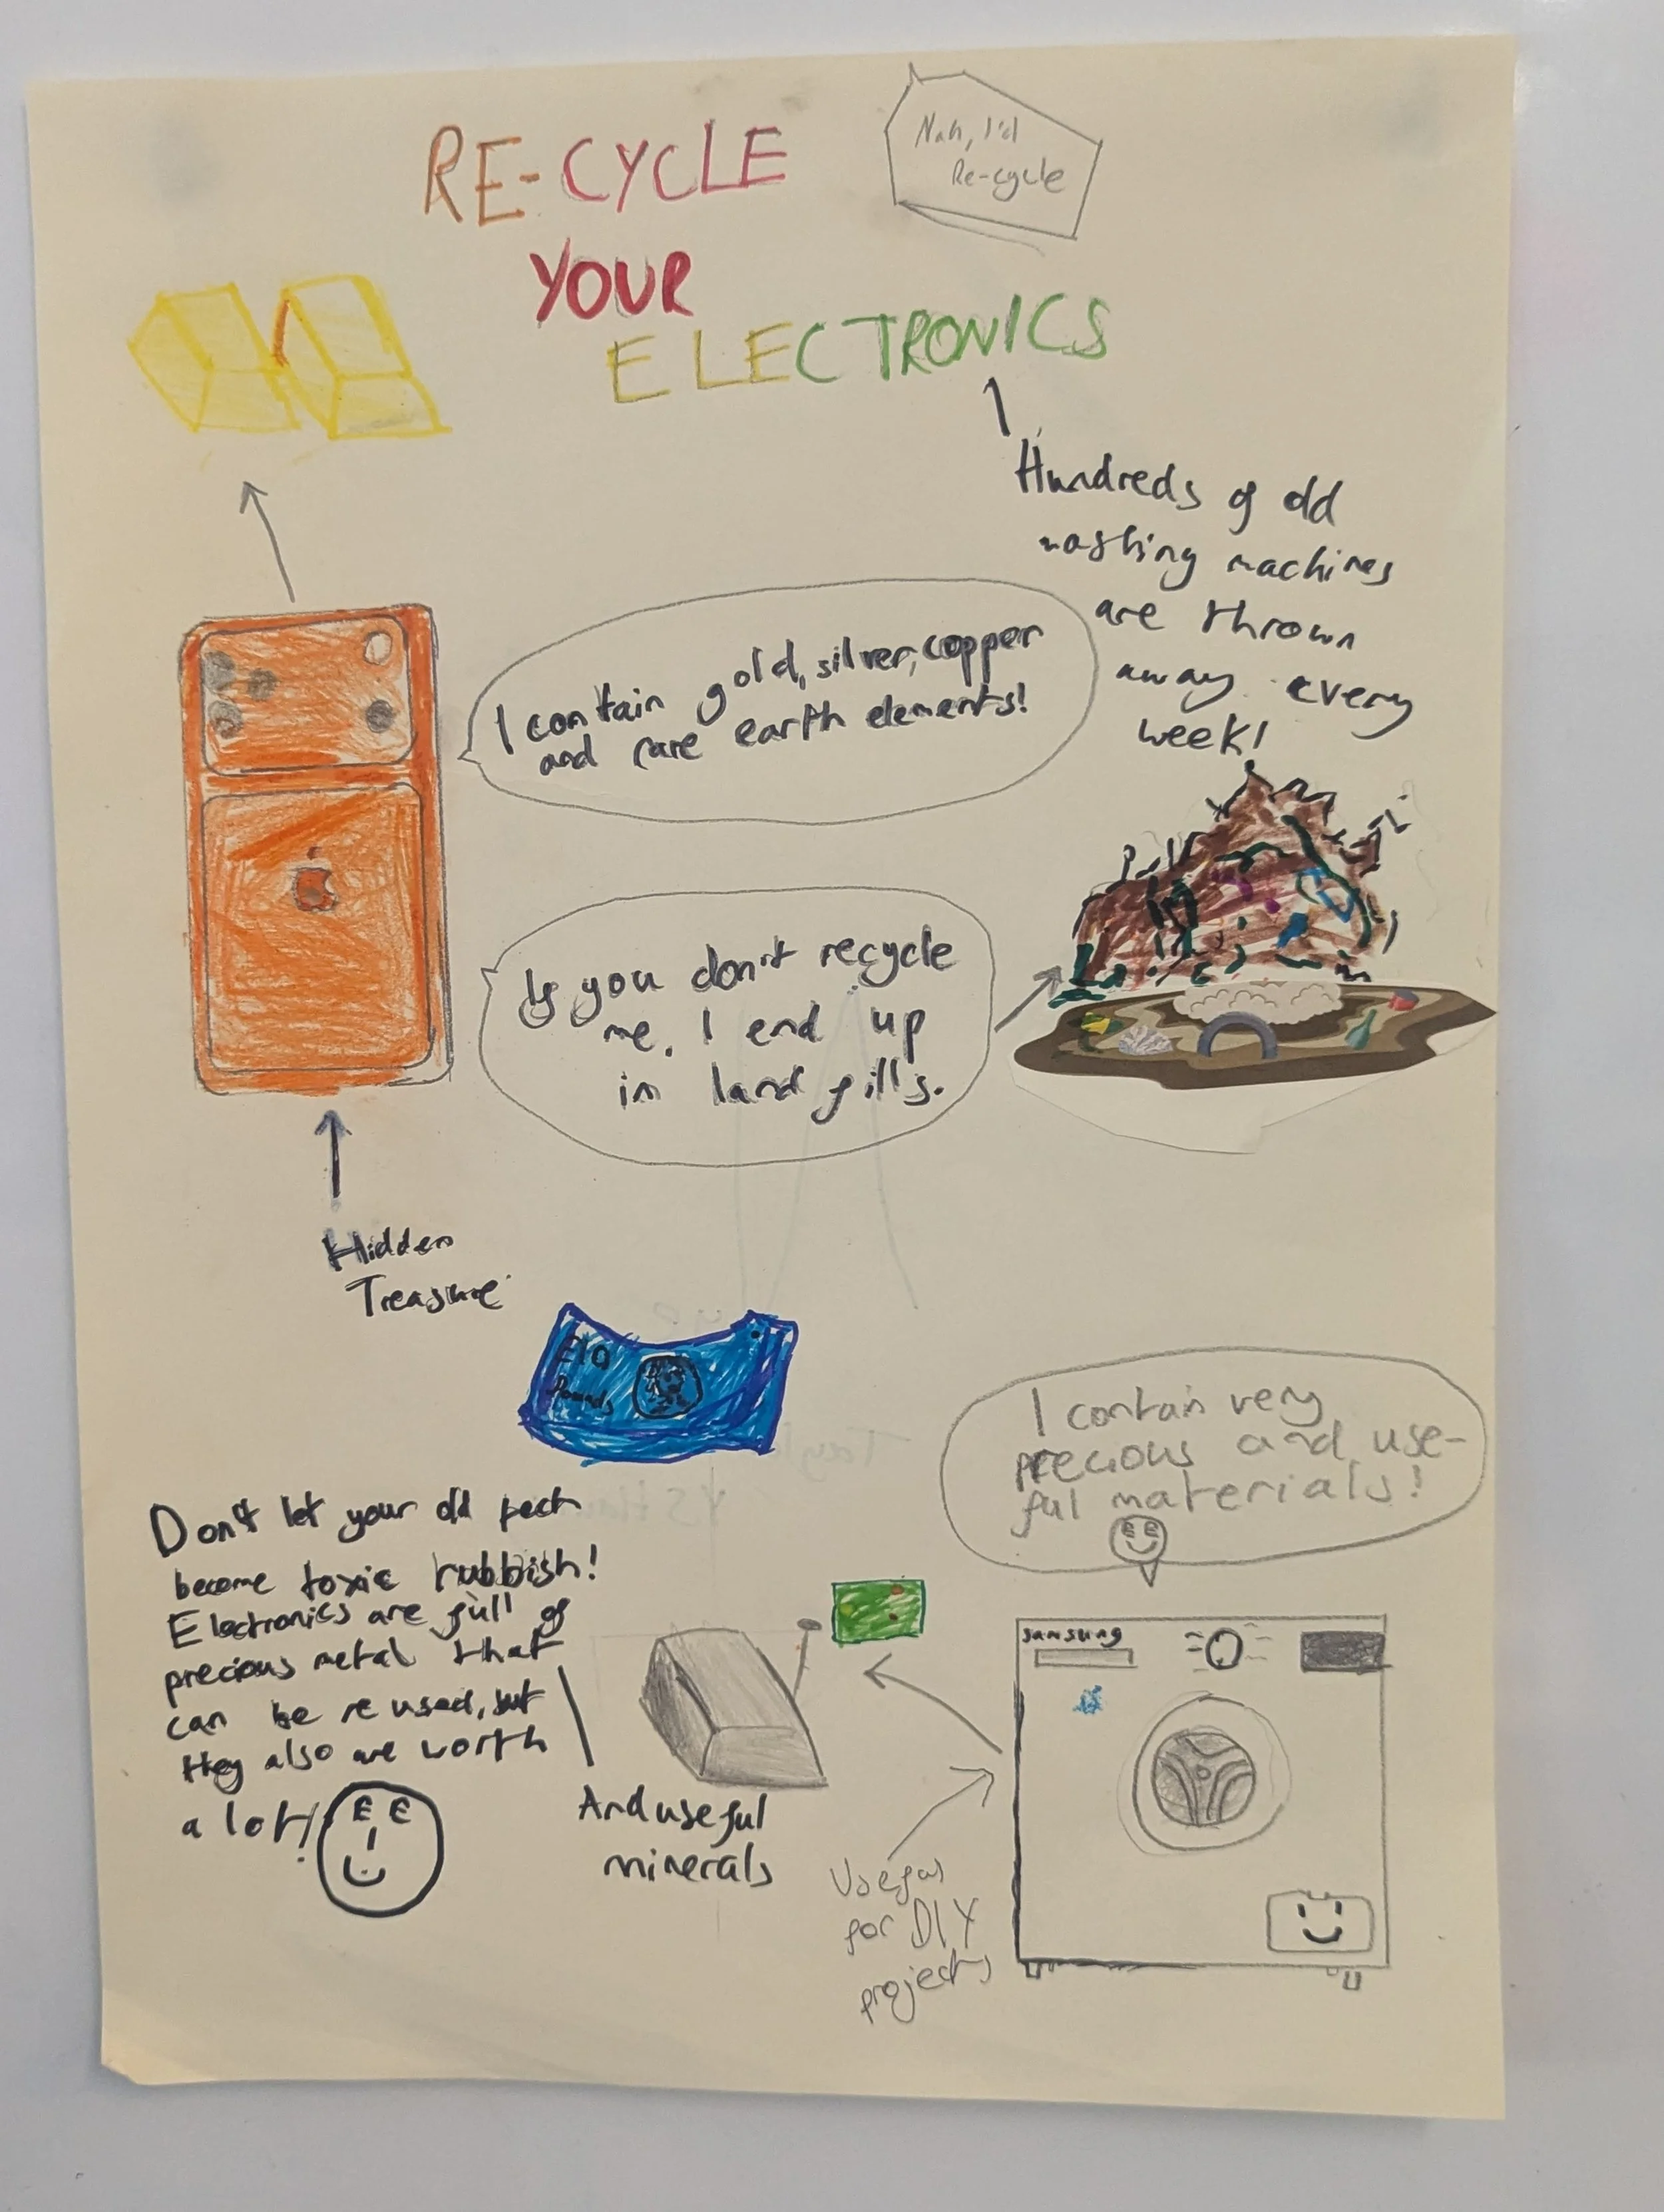 RE-CYCLE
YOUR
ELECTRONICS
Nah, I'd
Re-cycle
Hundreds of old
washing machines
are thrown
away every
week!
I contain gold, silver, copper
and rare earth elements!
If you don't recycle
me, I end up
in landfills.
Hidden
Treasure
£10
Pounds
I contain very
precious and use-
ful materials!
Don't let your old tech
become toxic rubbish!
Electronics are full of
precious metal that
can be reused, but
they also are worth
a lot!
And useful
minerals
Samsung
for DIY
projects